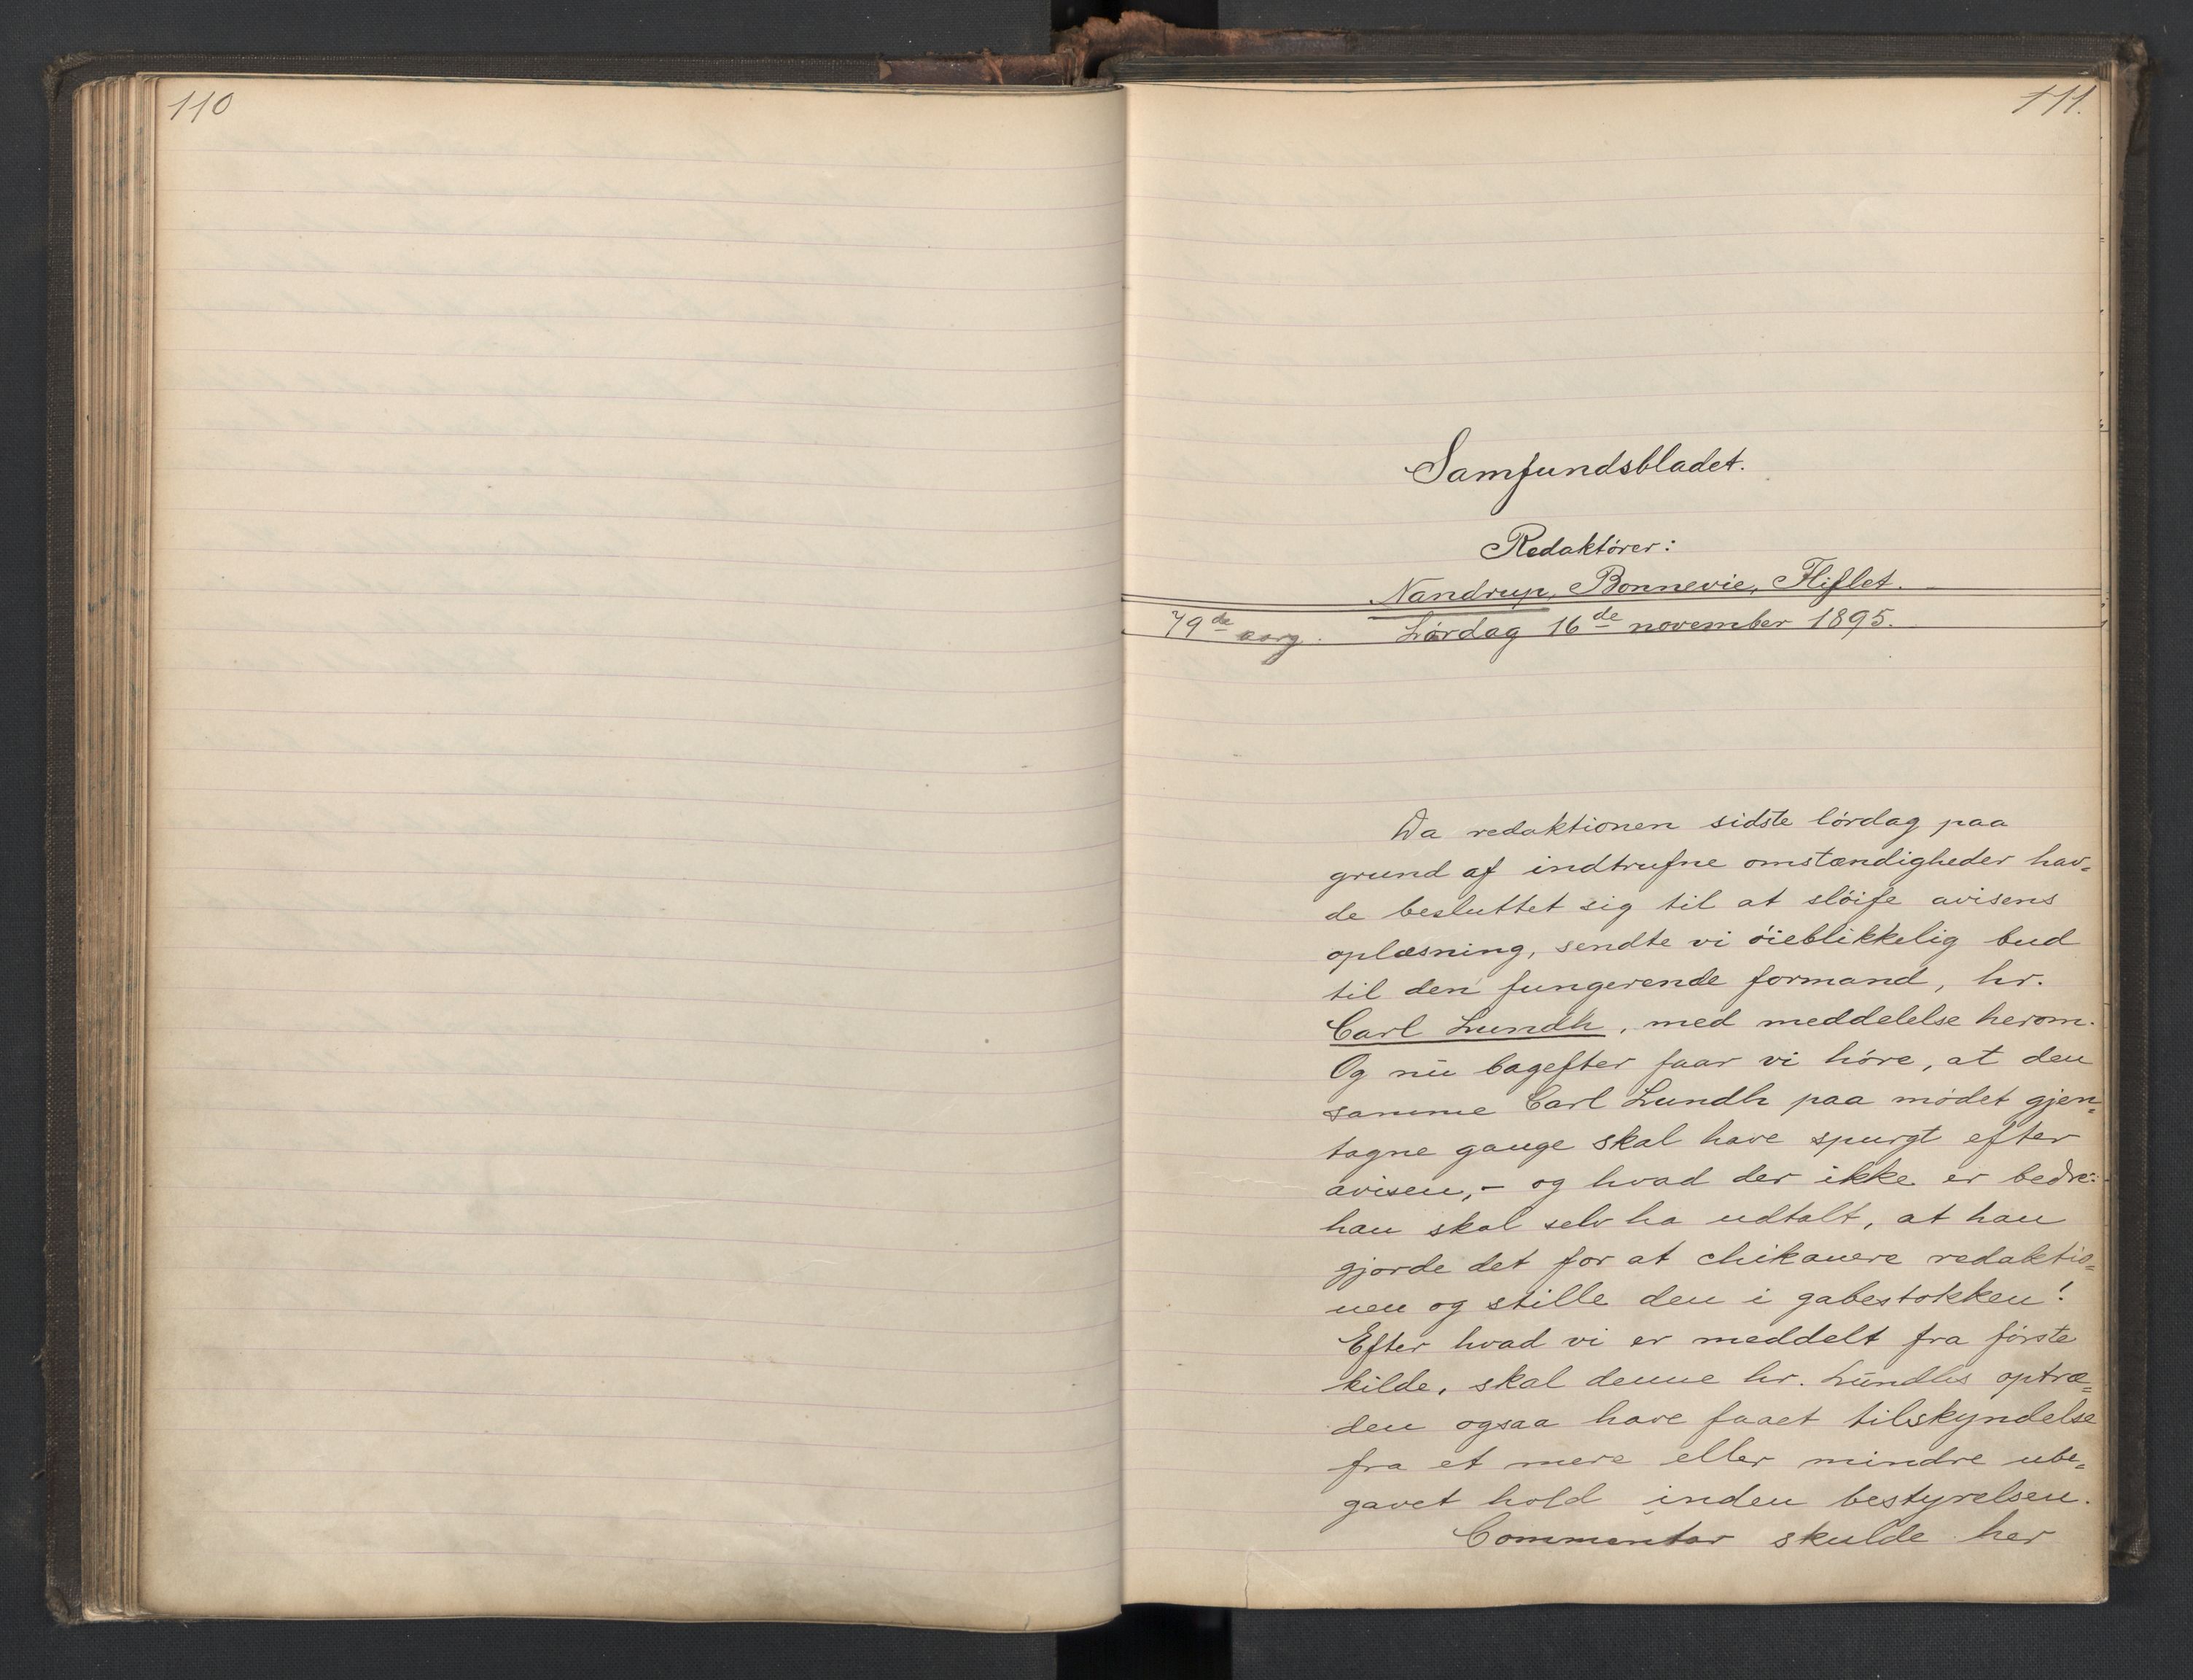 110
111.
Samfundsbladet.
Redaktører:
Nandrup, Bonnevie, Fliflet.
79de aarg. Lørdag 16de november 1895.
Da redaktionen sidste lørdag paa
grund af indtrufne omstændigheder hav=
de besluttet sig til at sløife avisens
oplæsning, sendte vi øieblikkelig bud
til den fungerende formand, hr.
Carl Lundh, med meddelelse herom.
Og nu bagefter faar vi høre, at den
samme Carl Lundh paa mødet gjen=
tagne gange skal have spurgt efter
avisen, - og hvad der ikke er bedre:
han skal selv ha udtalt, at han
gjorde det for at chikanere redaktio=
nen og stille den i gabestokken!
Efter hvad vi er meddelt fra første
kilde, skal denne hr. Lundhs optræ=
den ogsaa have faaet tilskyndelse
fra et mere eller mindre ube=
gavet hold inden bestyrelsen.
Commentar skulde her